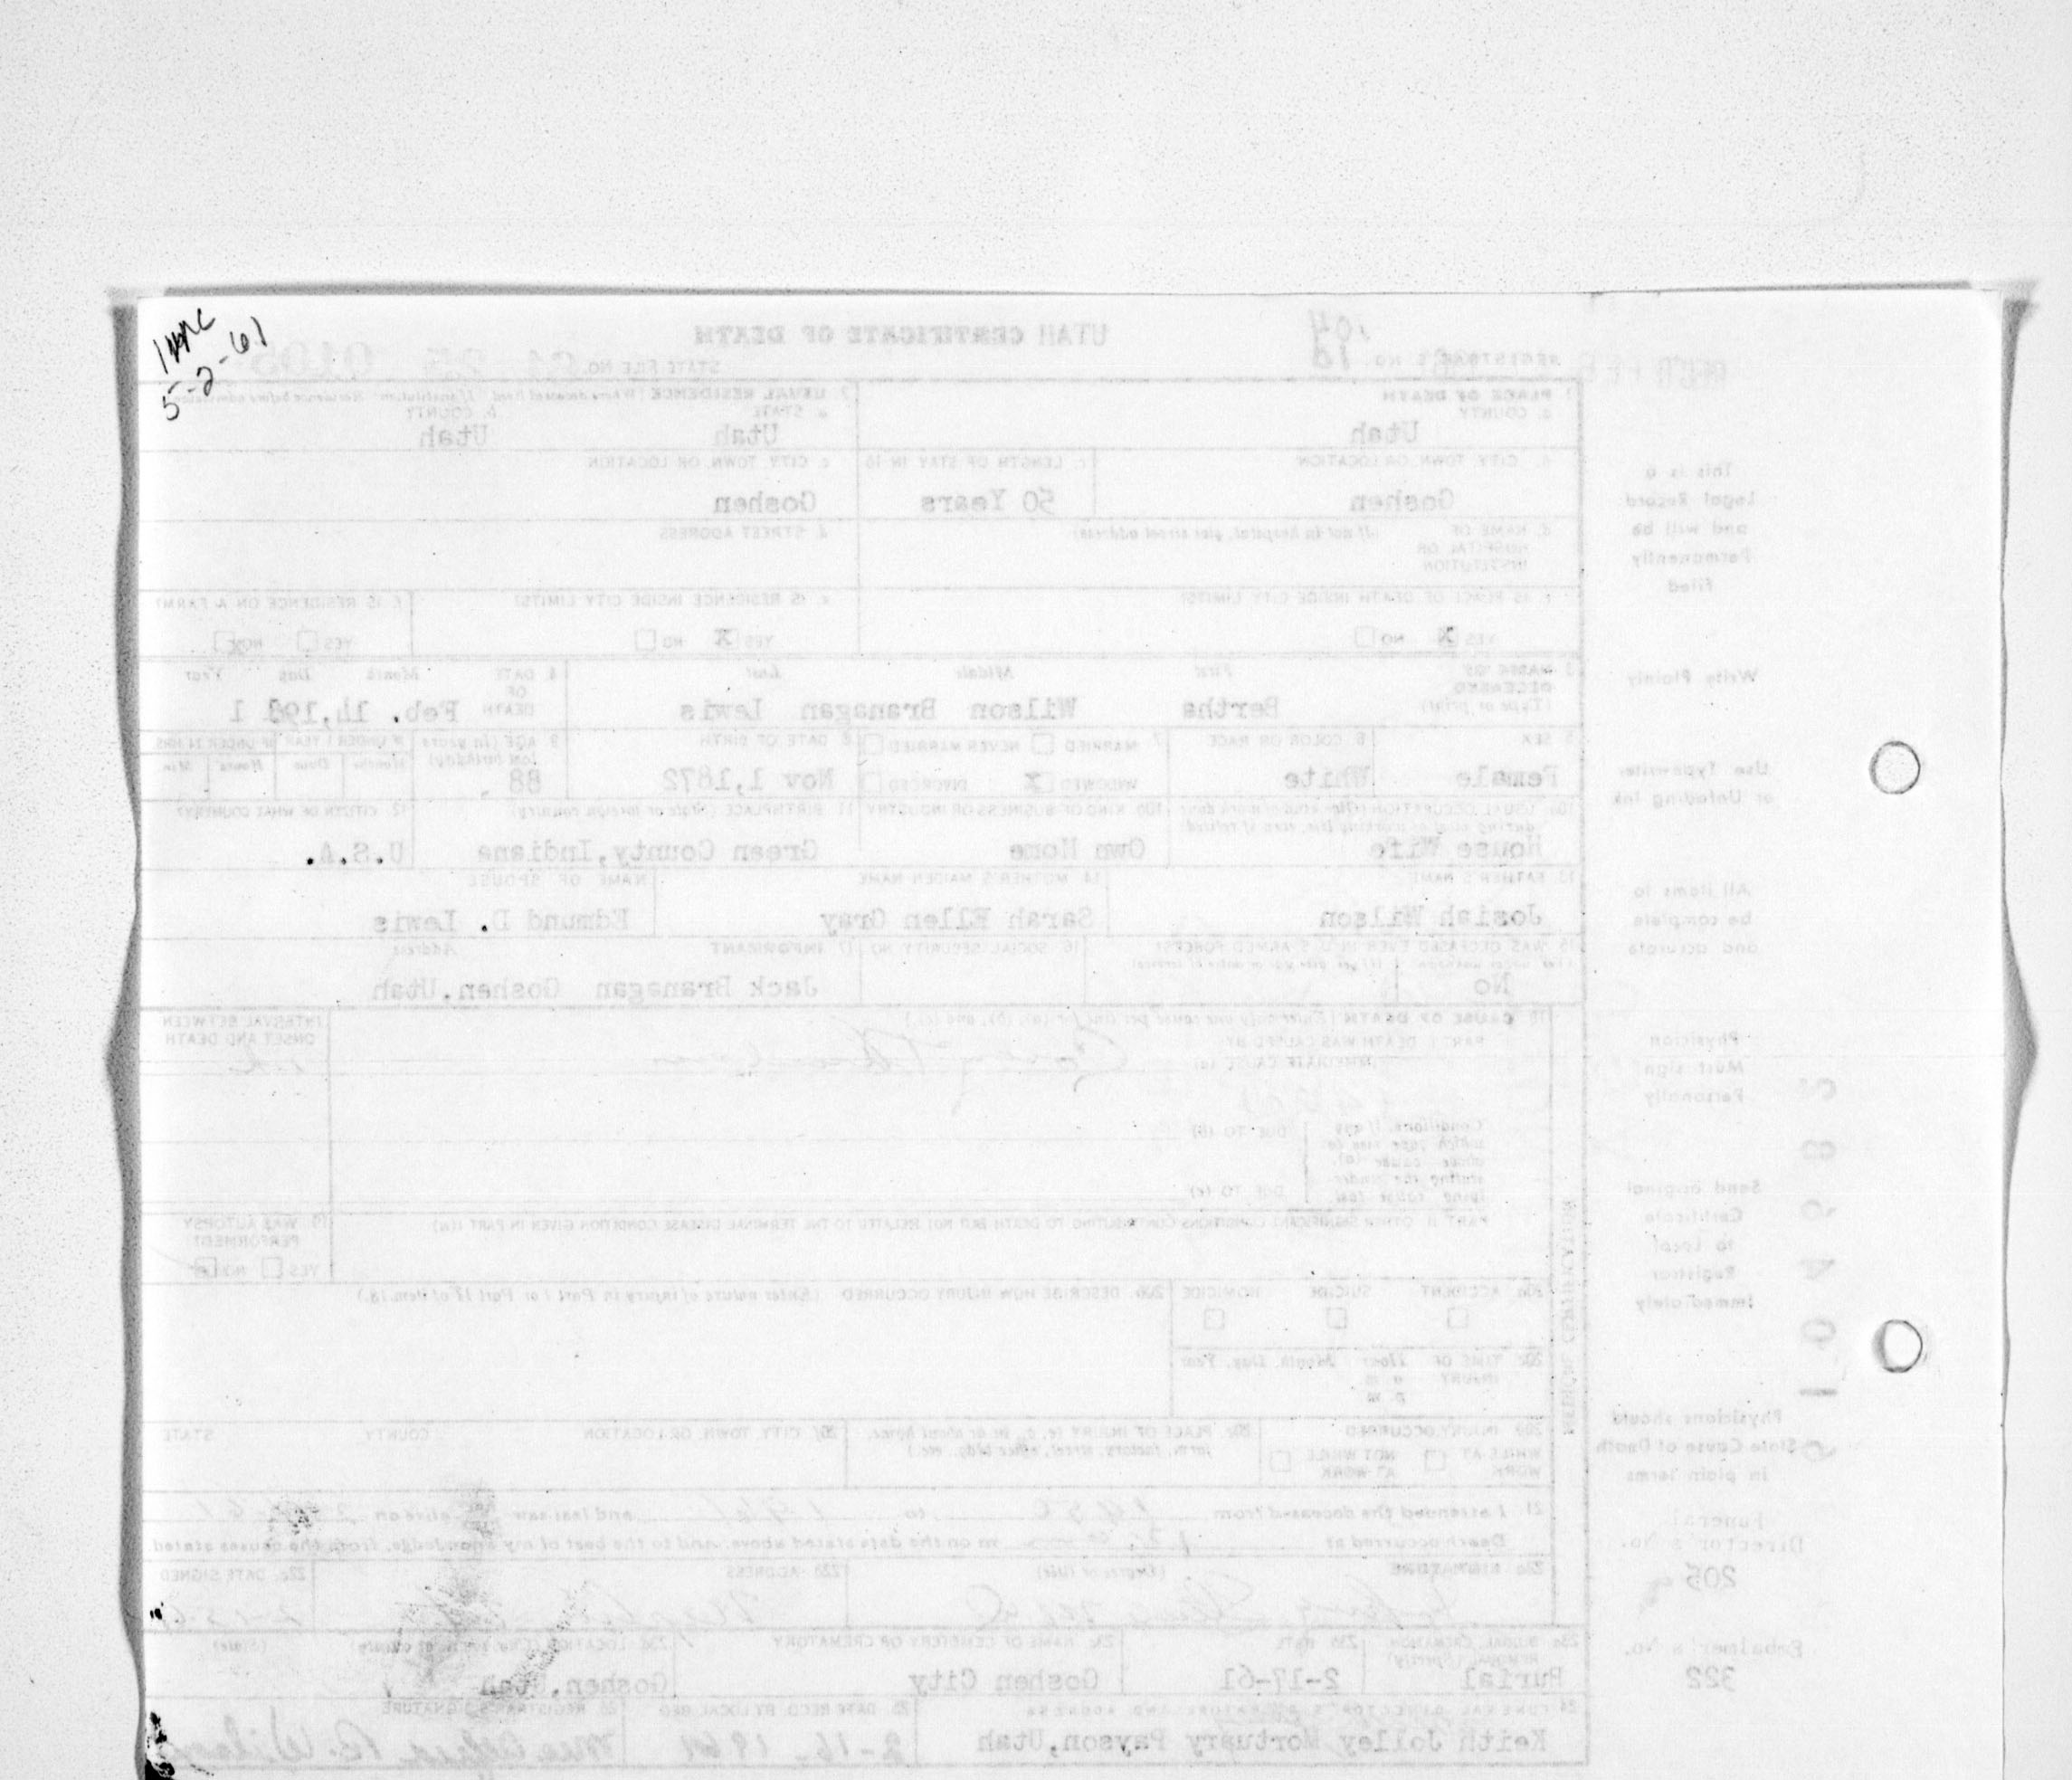 5-2-61
UTAH CERTIFICATE OF DEATH
REGISTRAR'S NO. 18
104
STATE FILE NO. 61 25 0105
1. PLACE OF DEATH
a. COUNTY
Utah
2. USUAL RESIDENCE (Where deceased lived. If institution: Residence before admission)
a. STATE
b. COUNTY
Utah
Utah
b. CITY, TOWN, OR LOCATION
c. LENGTH OF STAY IN 1b
c. CITY, TOWN, OR LOCATION
Goshen
50 Years
Goshen
d. NAME OF HOSPITAL OR INSTITUTION
(If not in hospital, give street address)
d. STREET ADDRESS
e. IS PLACE OF DEATH INSIDE CITY LIMITS?
e. IS RESIDENCE INSIDE CITY LIMITS?
f. IS RESIDENCE ON A FARM?
YES X NO
YES X NO
YES NO X
3. NAME OF DECEASED (Type or print)
First Middle Last
Bertha Wilson Branagan Lewis
4. DATE OF DEATH
Month Day Year
Feb. 14,1961
5. SEX
6. COLOR OR RACE
7. MARRIED NEVER MARRIED
WIDOWED X DIVORCED
8. DATE OF BIRTH
9. AGE (In years last birthday)
IF UNDER 1 YEAR
IF UNDER 24 HRS
Months Days Hours Min.
Female
White
Nov 1,1872
88
10a. USUAL OCCUPATION (Give kind of work done during most of working life, even if retired)
10b. KIND OF BUSINESS OR INDUSTRY
11. BIRTHPLACE (State or foreign country)
12. CITIZEN OF WHAT COUNTRY?
House Wife
Own Home
Green County,Indiana
U.S.A.
13. FATHER'S NAME
14. MOTHER'S MAIDEN NAME
NAME OF SPOUSE
Josiah Wilson
Sarah Ellen Gray
Edmund D. Lewis
15. WAS DECEASED EVER IN U.S. ARMED FORCES?
16. SOCIAL SECURITY NO.
17. INFORMANT
Address
No
Jack Branagan Goshen,Utah
18. CAUSE OF DEATH (Enter only one cause per line for (a), (b), and (c).)
PART I. DEATH WAS CAUSED BY
IMMEDIATE CAUSE (a)
INTERVAL BETWEEN ONSET AND DEATH
Conditions, if any which gave rise to above cause (a), stating the underlying cause last.
DUE TO (b)
DUE TO (c)
PART II. OTHER SIGNIFICANT CONDITIONS CONTRIBUTING TO DEATH BUT NOT RELATED TO THE TERMINAL DISEASE CONDITION GIVEN IN PART I(a)
19. WAS AUTOPSY PERFORMED?
YES NO
20a. ACCIDENT SUICIDE HOMICIDE
20b. DESCRIBE HOW INJURY OCCURRED (Enter nature of injury in Part I or Part II of item 18.)
20c. TIME OF INJURY
Hour Month, Day, Year
a. m.
p. m.
20d. INJURY OCCURRED
WHILE AT WORK
NOT WHILE AT WORK
20e. PLACE OF INJURY (e. g., in or about home, farm, factory, street, office bldg., etc.)
20f. CITY, TOWN, OR LOCATION COUNTY STATE
MEDICAL CERTIFICATION
21. I attended the deceased from 1950 to 1961 and last saw alive on
Death occurred at m on the date stated above, and to the best of my knowledge, from the causes stated.
22a. SIGNATURE
(Degree or title)
22b. ADDRESS
22c. DATE SIGNED
23a. BURIAL, CREMATION, REMOVAL (Specify)
23b. DATE
23c. NAME OF CEMETERY OR CREMATORY
23d. LOCATION (City, town, or county)
(State)
Burial
2-17-61
Goshen City
Goshen,Utah
24. FUNERAL DIRECTOR'S SIGNATURE AND ADDRESS
25. DATE RECD. BY LOCAL REG
26. REGISTRAR'S SIGNATURE
Keith Jolley Mortuary Payson,Utah
2-16-1961
B. Wilson
This is a
Legal Record
and will be
Permanently
filed
Write Plainly
Use Typewriter
or Unfading Ink
All items to
be complete
and accurate
Physician
Must sign
Personally
Send original
Certificate
to Local
Registrar
Immediately
Physicians should
State Cause of Death
in plain terms
Funeral
Director's No.
205
Embalmer's No.
322